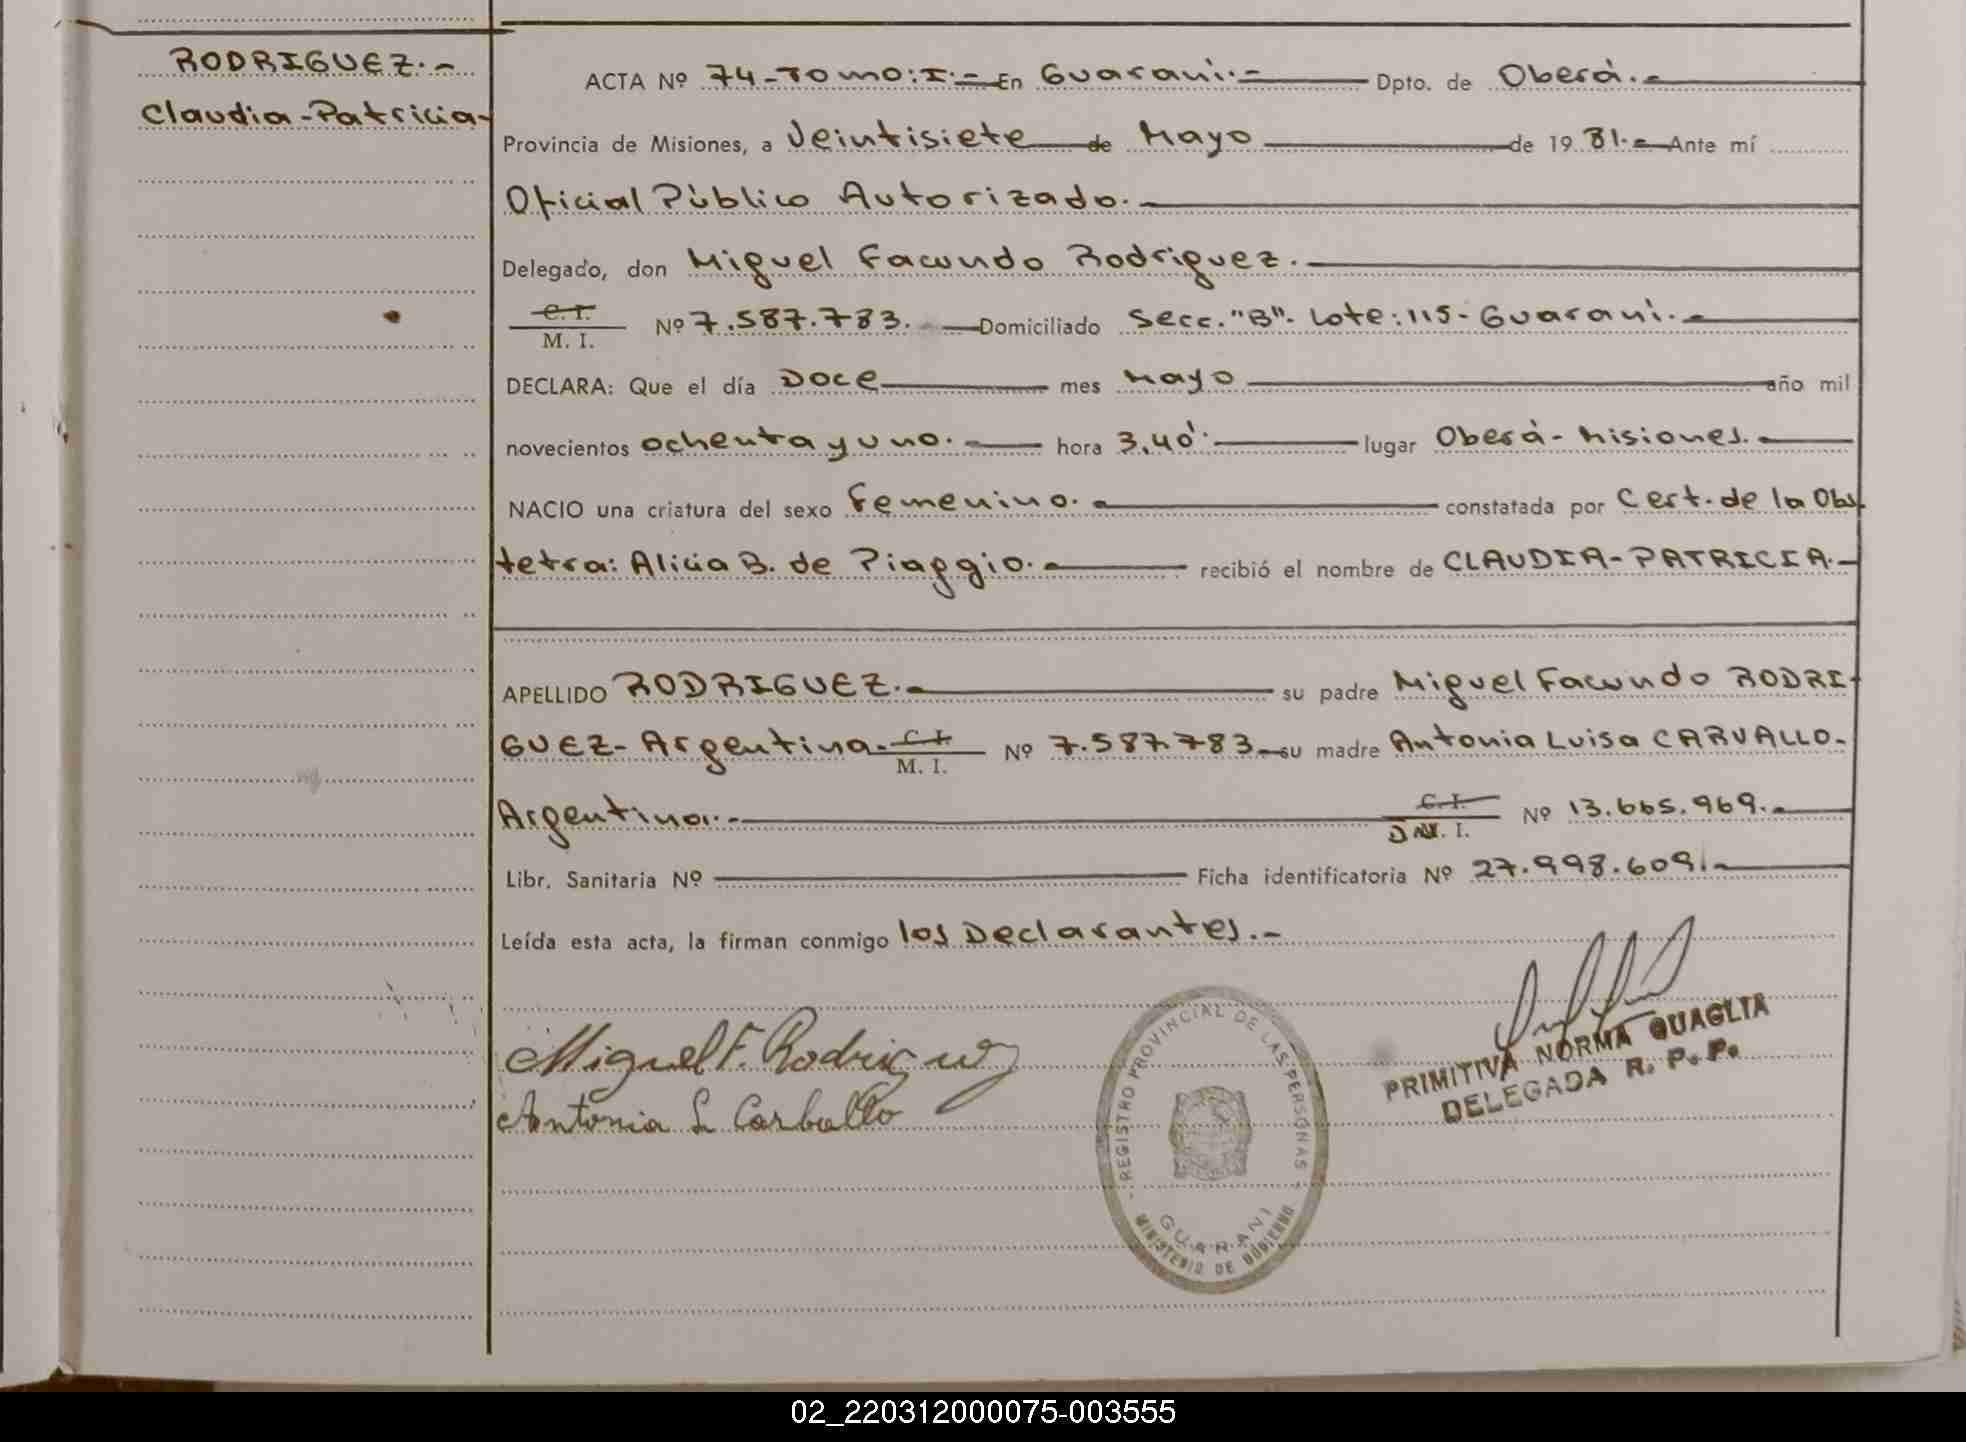 RODRIGUEZ.-
Claudia-Patricia-
ACTA Nº 74-Tomo:I.- En Guaraní.- Dpto. de Oberá.-
Provincia de Misiones, a Veintisiete de Mayo de 19 81.- Ante mí
Oficial Público Autorizado.-
Delegado, don Miguel Facundo Rodriguez.
C. I.
M. I. Nº 7.587.783. Domiciliado Secc."B". Lote:115-Guaraní.-
DECLARA: Que el día Doce mes Mayo año mil
novecientos ochenta y uno.- hora 3,40'. lugar Oberá-Misiones.-
NACIO una criatura del sexo Femenino.- constatada por Cert. de la Obs
tetra: Alicia B. de Piaggio.- recibió el nombre de CLAUDIA-PATRICIA.-
APELLIDO RODRIGUEZ.- su padre Miguel Facundo RODRI-
GUEZ-Argentina- C. I. M. I. Nº 7.587.783- su madre Antonia Luisa CARVALLO-
Argentina.- C. I. D N. I. Nº 13.665.969.-
Libr. Sanitaria Nº Ficha identificatoria Nº 27.998.609.-
Leída esta acta, la firman conmigo los Declarantes.-
Miguel F. Rodriguez
Antonia L Carballo
REGISTRO PROVINCIAL DE LAS PERSONAS
GUARANI
MINISTERIO DE GOBIERNO
PRIMITIVA NORMA QUAGLIA
DELEGADA R. P. P.
02_220312000075-003555